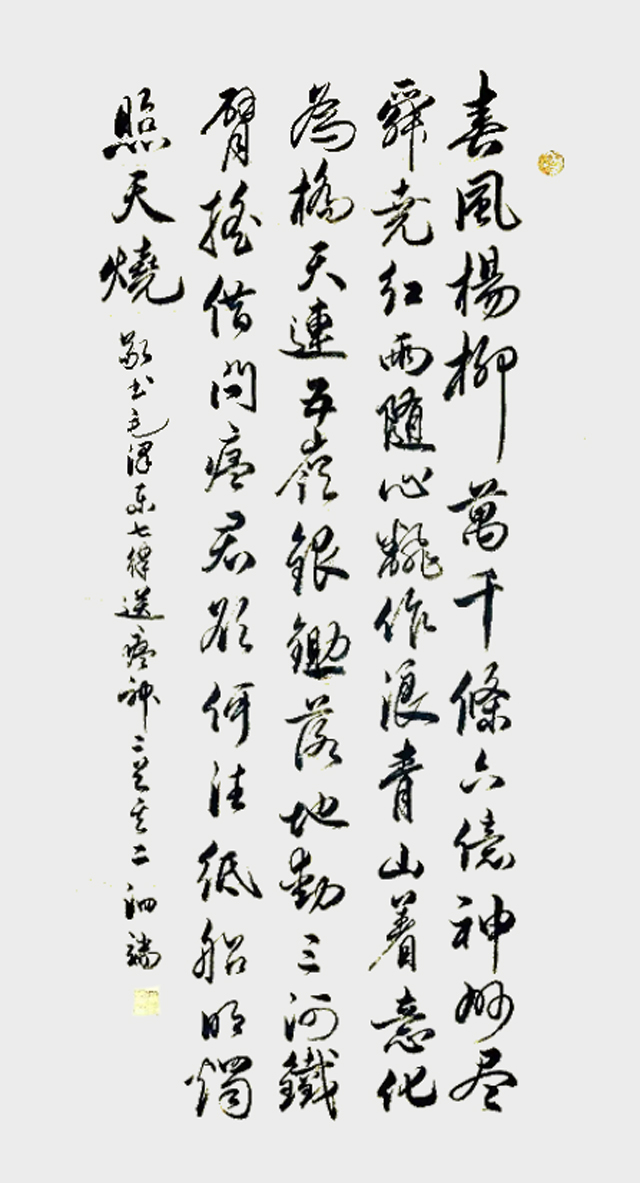 春風楊柳萬千條六億神州尽
舜尧红雨隨心翻作浪青山着意化
為橋天連五嶺銀鋤落地動三河鐵
臂搖借問瘟君欲何往纸船明燭
照天燒
敬书毛泽东七律送瘟神二首其二 泗端